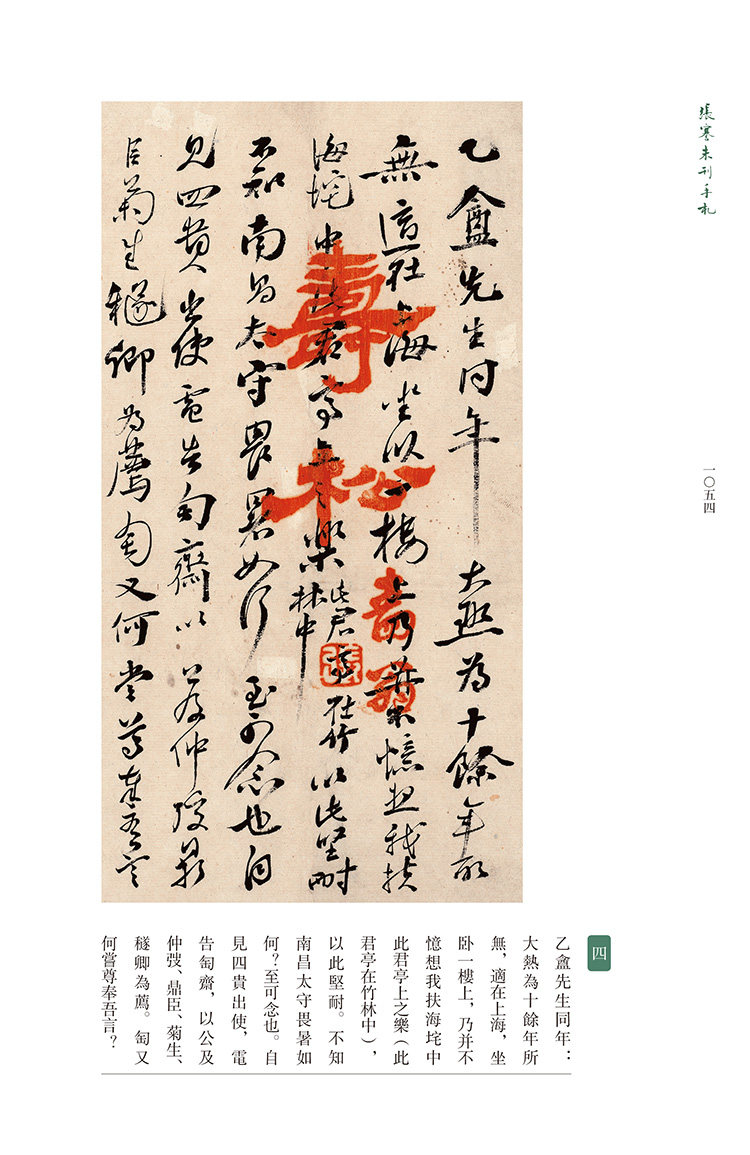 張謇未刊手札
一〇五四
乙盦先生同年 大熱為十餘年所
無適在上海坐卧一樓上乃并不憶想我扶
海垞中此君亭上之樂此君亭在竹林中以此堅耐
不知南昌太守畏暑如何至可念也自
見四貴出使電告匋齋以公及仲弢鼎
臣菊生穟卿為薦匋又何嘗尊奉吾言
壽松
嗇翁
張
四
乙盦先生同年：
大熱為十餘年所
無，適在上海，坐
卧一樓上，乃并不
憶想我扶海垞中
此君亭上之樂（此
君亭在竹林中），
以此堅耐。不知
南昌太守畏暑如
何？至可念也。自
見四貴出使，電
告匋齋，以公及
仲弢、鼎臣、菊生、
穟卿為薦。匋又
何嘗尊奉吾言？